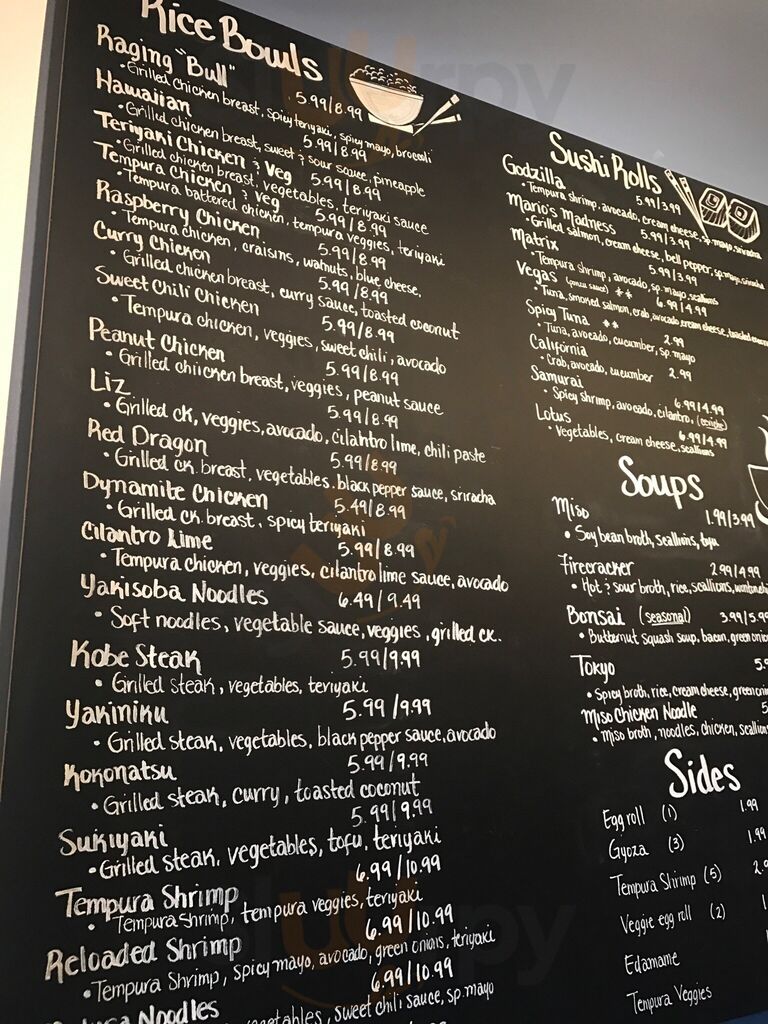 Rice Bowls
Raging "Bull" 5.99/8.99
• Grilled chicken breast, spicy teriyaki, spicy mayo, broccoli
Hawaiian 5.99/8.99
• Grilled chicken breast, sweet & sour sauce, pineapple
Teriyaki Chicken & Veg 5.99/8.99
• Grilled chicken breast, vegetables, teriyaki sauce
Tempura Chicken & Veg 5.99/8.99
• Tempura battered chicken, tempura veggies, teriyaki
Raspberry Chicken 5.99/8.99
• Tempura chicken, craisins, walnuts, blue cheese,
Curry Chicken 5.99/8.99
• Grilled chicken breast, curry sauce, toasted coconut
Sweet Chili Chicken 5.99/8.99
• Tempura chicken, veggies, sweet chili, avocado
Peanut Chicken 5.99/8.99
• Grilled chiicken breast, veggies, peanut sauce
Liz 5.99/8.99
• Grilled ck, veggies, avocado, cilantro lime, chili paste
Red Dragon 5.99/8.99
• Grilled ck. breast, vegetables, black pepper sauce, sriracha
Dynamite Chicken 5.49/8.99
• Grilled ck. breast, spicy teriyaki
Cilantro Lime 5.99/8.99
• Tempura chicken, veggies, cilantro lime sauce, avocado
Yakisoba Noodles 6.49/9.49
• Soft noodles, vegetable sauce, veggies, grilled ck.
Kobe Steak 5.99/9.99
• Grilled steak, vegetables, teriyaki
Yakiniku 5.99/9.99
• Grilled steak, vegetables, black pepper sauce, avocado
Kokonatsu 5.99/9.99
• Grilled steak, curry, toasted coconut
Sukiyaki 5.99/9.99
• Grilled steak, vegetables, tofu, teriyaki
Tempura Shrimp 6.99/10.99
• Tempura shrimp, tempura veggies, teriyaki
Reloaded Shrimp 6.99/10.99
• Tempura Shrimp, spicy mayo, avocado, green onions, teriyaki
Noodles 6.99/10.99
vegetables, sweet chili sauce, sp. mayo
Sushi Rolls
Godzilla 5.99/3.99
• Tempura shrimp, avocado, cream cheese, sp. mayo, sriracha
Mario's Madness 5.99/3.99
• Grilled salmon, cream cheese, bell pepper, sp. mayo, sriracha
Matrix 5.99/3.99
• Tempura shrimp, avocado, sp. mayo, scallions
Vegas ** 6.99/4.99
• Tuna, smoked salmon, crab, avocado, cream cheese,
Spicy Tuna ** 2.99
• Tuna, avocado, cucumber, sp. mayo
California 2.99
• Crab, avocado, cucumber
Samurai 6.99/4.99
• Spicy shrimp, avocado, cilantro,
Lotus 6.99/4.99
• Vegetables, cream cheese, scallions
Soups
Miso 1.99/3.99
• Soy bean broth, scallions, tofu
Firecracker 2.99/4.99
• Hot & sour broth, rice, scallions,
Bonsai (seasonal) 3.99/5.99
• Butternut squash soup, bacon, green onion
Tokyo 5.9
• Spicy broth, rice, cream cheese, green
Miso Chicken Noodle 5
• Miso broth, noodles, chicken, scallion
Sides
Egg roll (1) 1.99
Gyoza (3) 1.99
Tempura Shrimp (5) 2.9
Veggie egg roll (2) 1
Edamame
Tempura Veggies